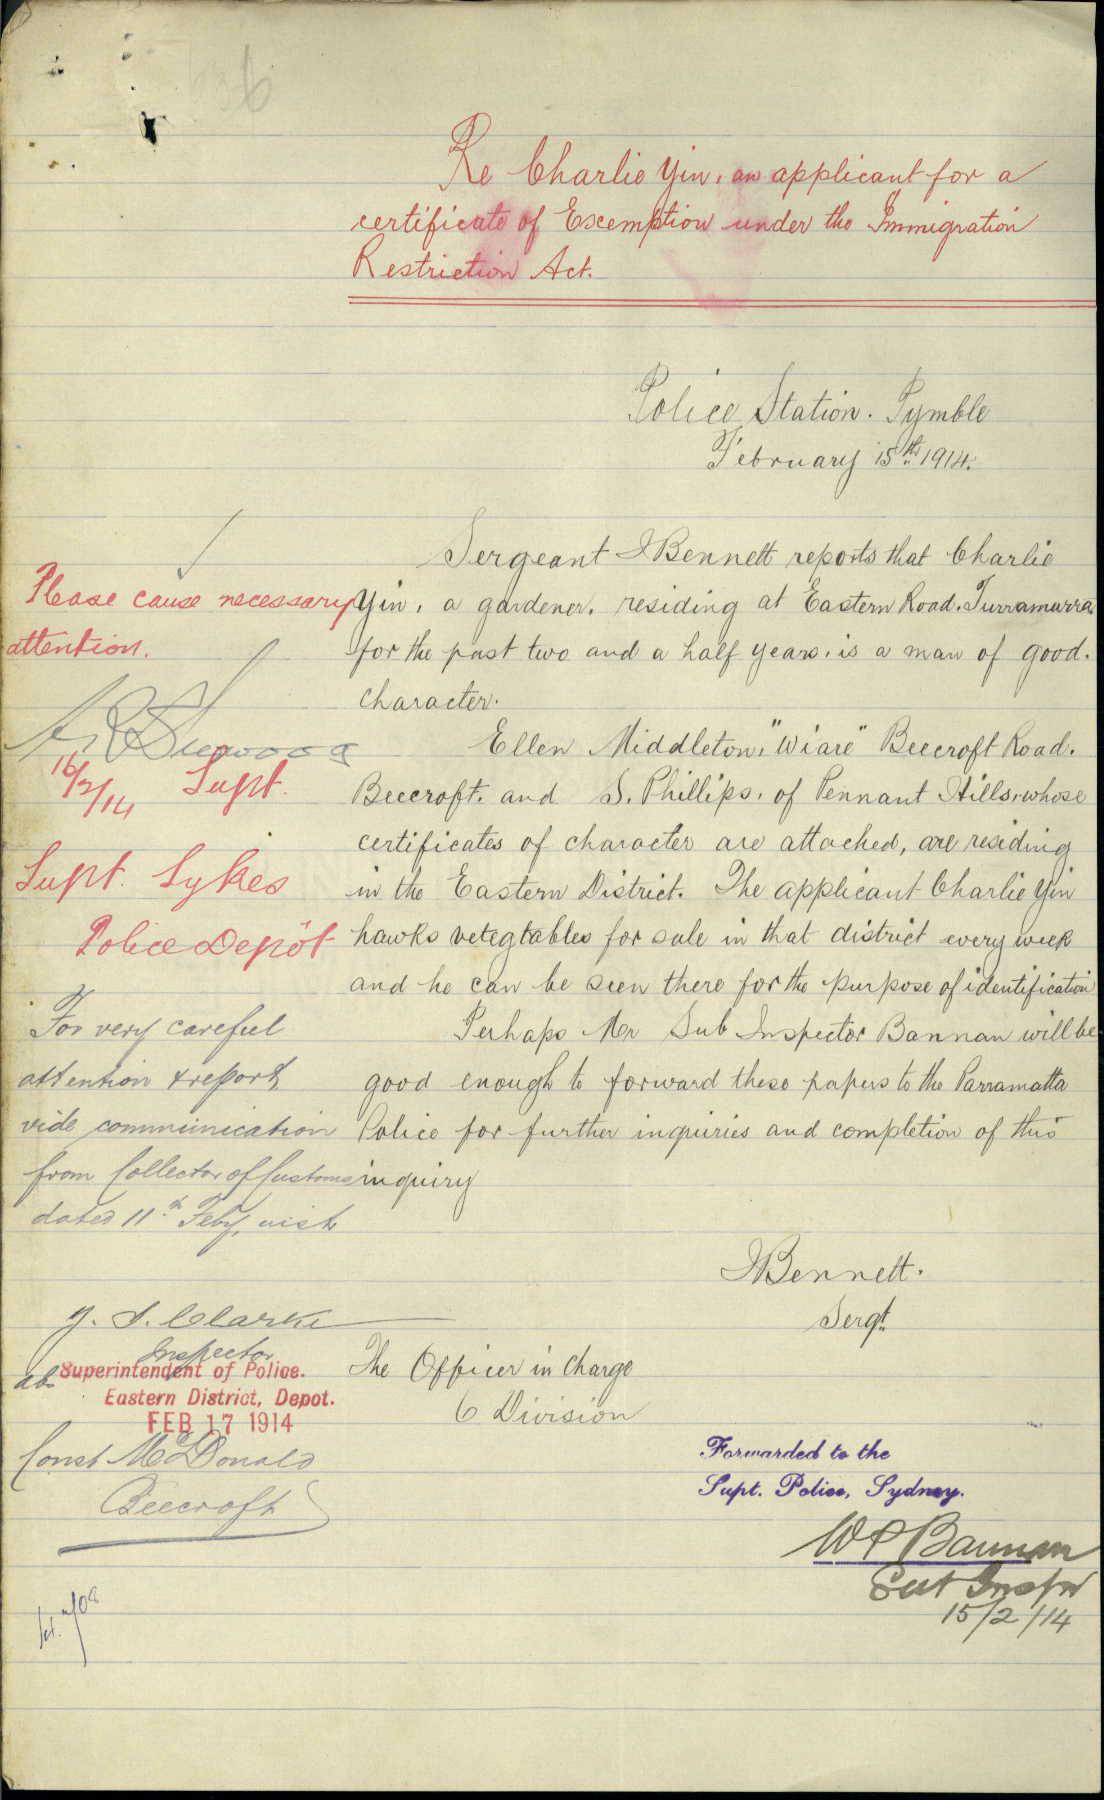 Re Charlie Yin, an applicant for a
certificate of Exemption under the Immigration
Restriction Act.
Police Station. Pymble
February 15th 1914.
Sergeant J Bennett reports that Charlie
Yin, a gardener, residing at Eastern Road, Turramurra
for the past two and a half years, is a man of good
character.
Ellen Middleton, "Wiare" Beecroft Road.
Beecroft. and S. Phillips, of Pennant Hills, whose
certificates of character are attached, are residing
in the Eastern District. The applicant Charlie Yin
hawks vetegtables for sale in that district every week
and he can be seen there for the purpose of identification
Perhaps Mr Sub Inspector Bannan will be
good enough to forward these papers to the Parramatta
Police for further inquiries and completion of this
inquiry
JBennett.
Sergt.
The Officer in Charge
6 Division
Forwarded to the
Supt. Police, Sydney.
W P Bannan
Inspr
15/2/14
Please cause necessary
attention.
16/2/14 Supt.
Supt. Sykes
Police Depôt
For very careful
attention & report,
vide communication
from Collector of Customs
dated 11th Feby,
J. S. Clarke
Inspector
Superintendent of Police.
Eastern District, Depot.
FEB 17 1914
Const McDonald
Beecroft